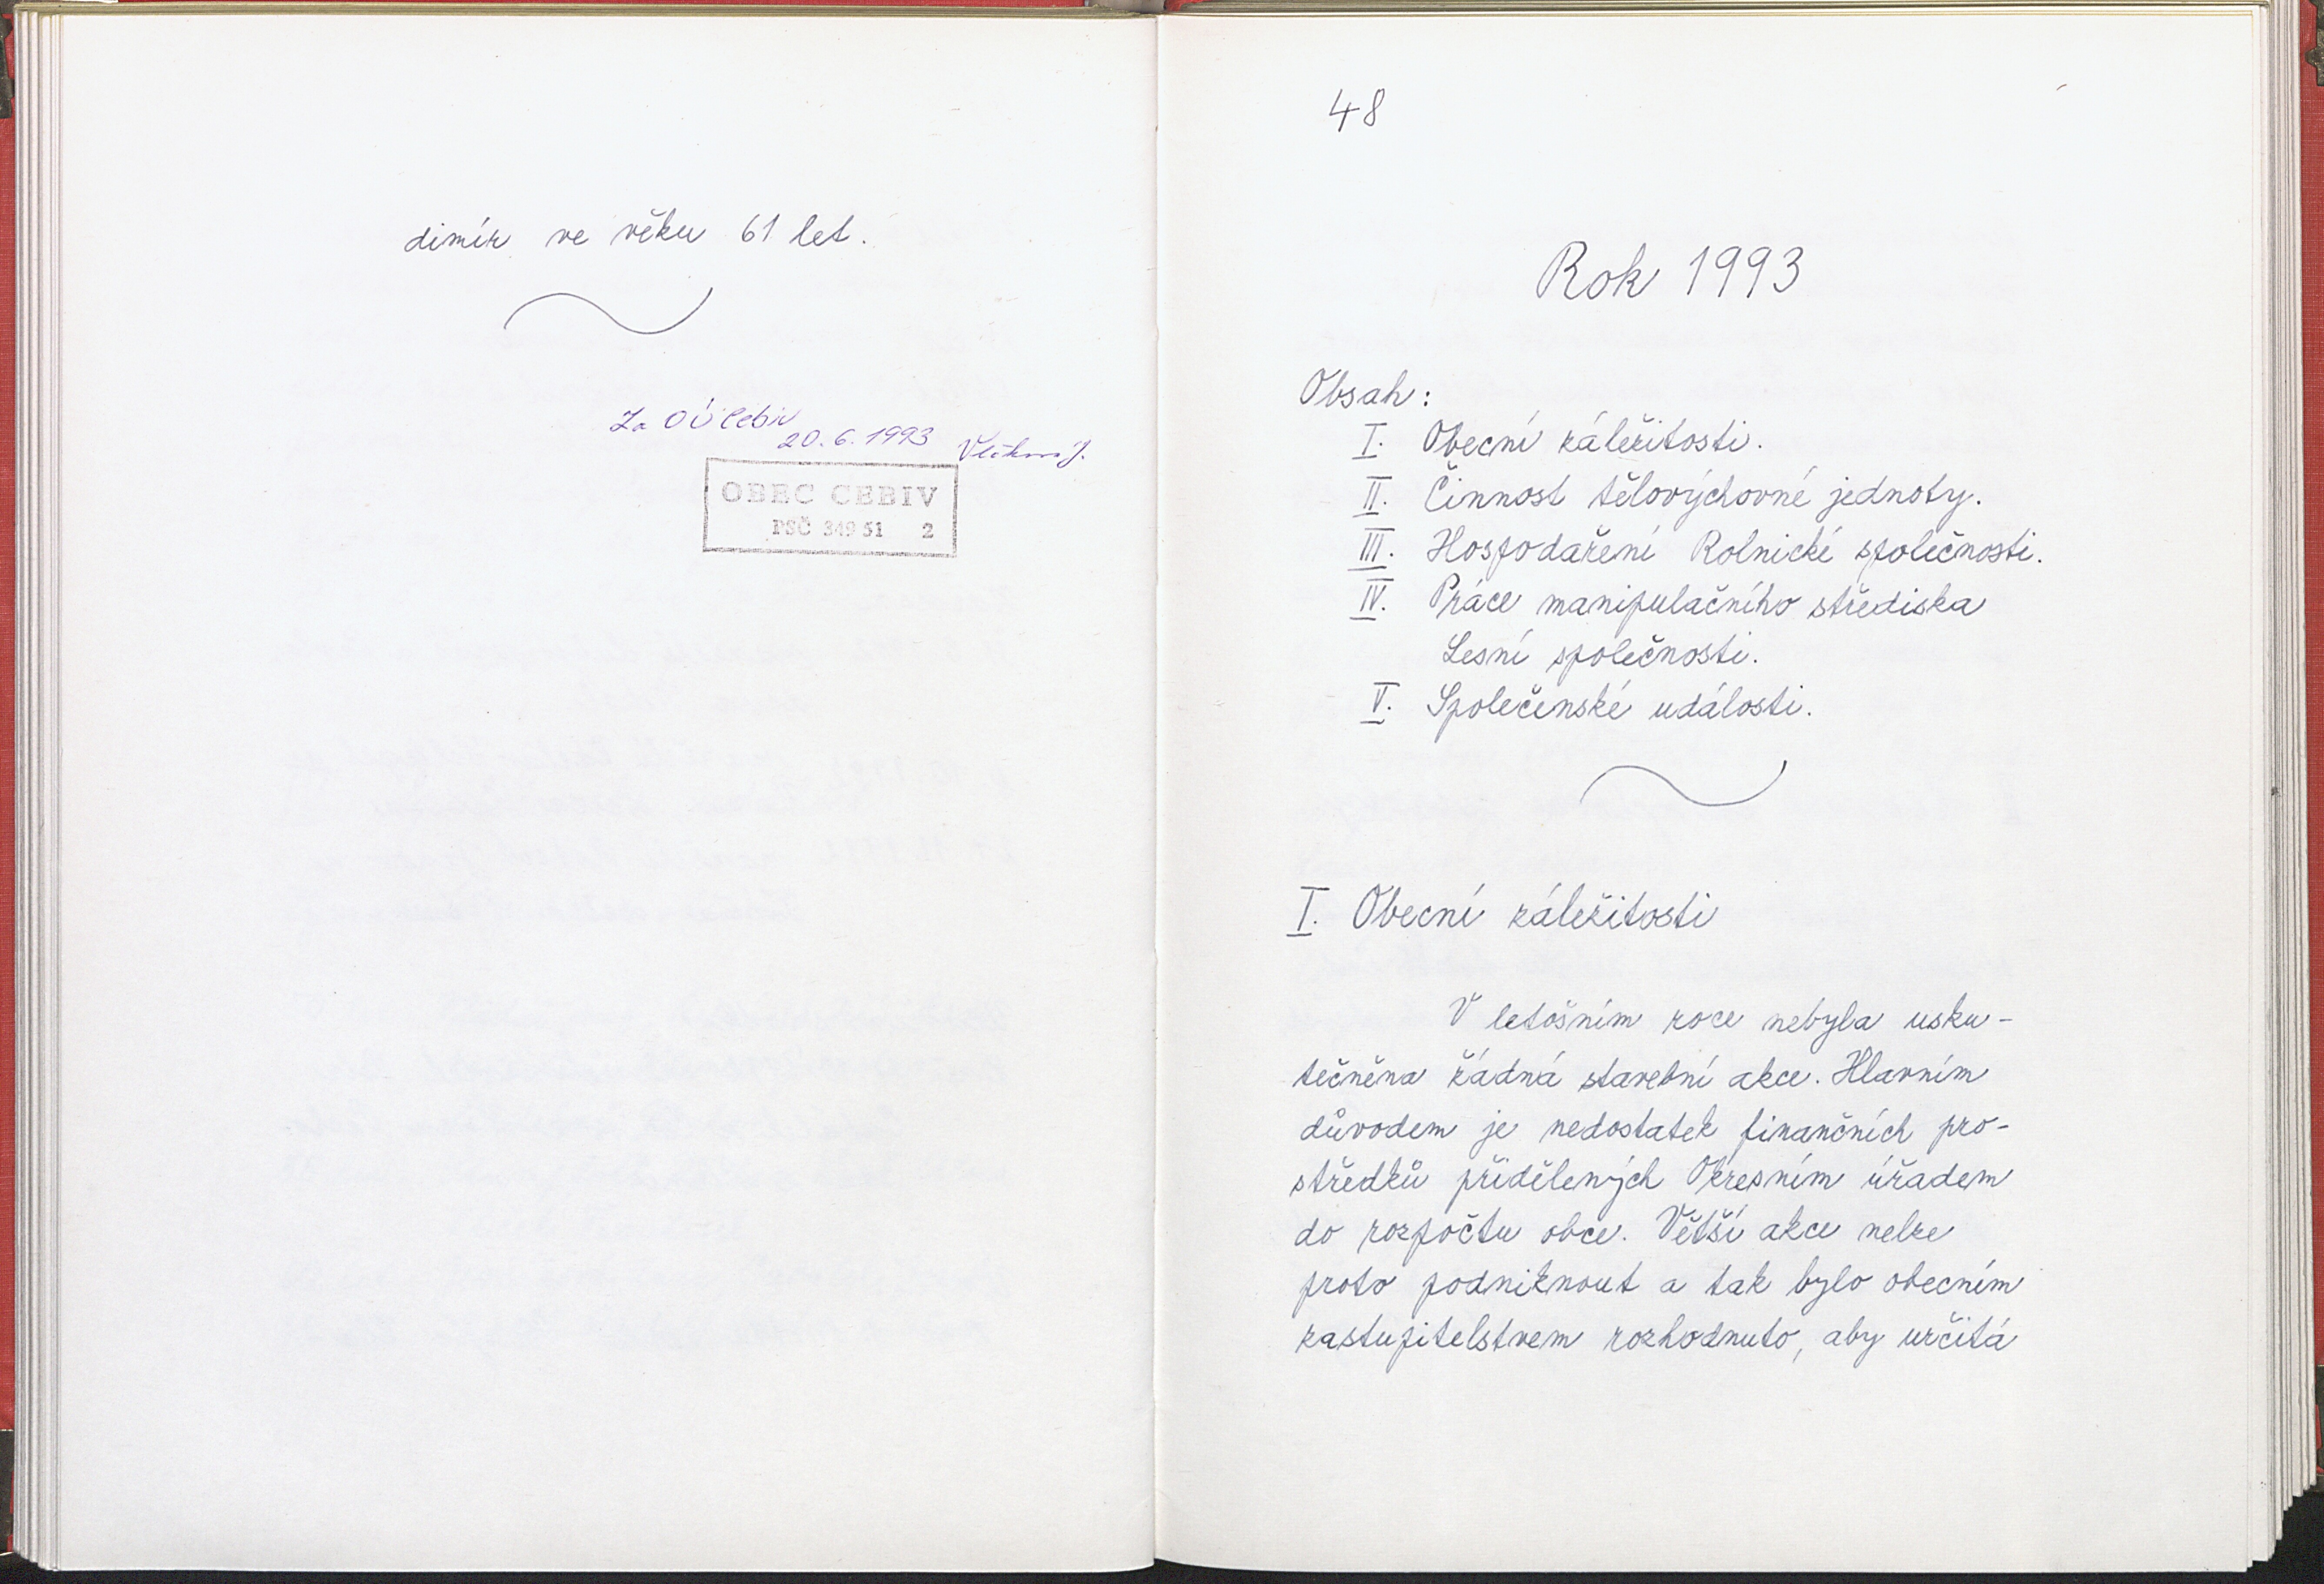 dimír ve věku 61 let.
Za OÚ Cebiv
20. 6. 1993
OBEC CEBIV
PSČ 349 51 2
48
Rok 1993
Obsah:
I. Obecní záležitosti.
II. Činnost tělovýchovné jednoty.
III. Hospodaření Rolnické společnosti.
IV. Práce manipulačního střediska
Lesní společnosti.
V. Společenské události.
I. Obecní záležitosti
V letošním roce nebyla usku-
tečněna žádná stavební akce. Hlavním
důvodem je nedostatek finančních pro-
středků přidělených Okresním úřadem
do rozpočtu obce. Větší akce nelze
proto podniknout a tak bylo obecním
zastupitelstvem rozhodnuto, aby určitá